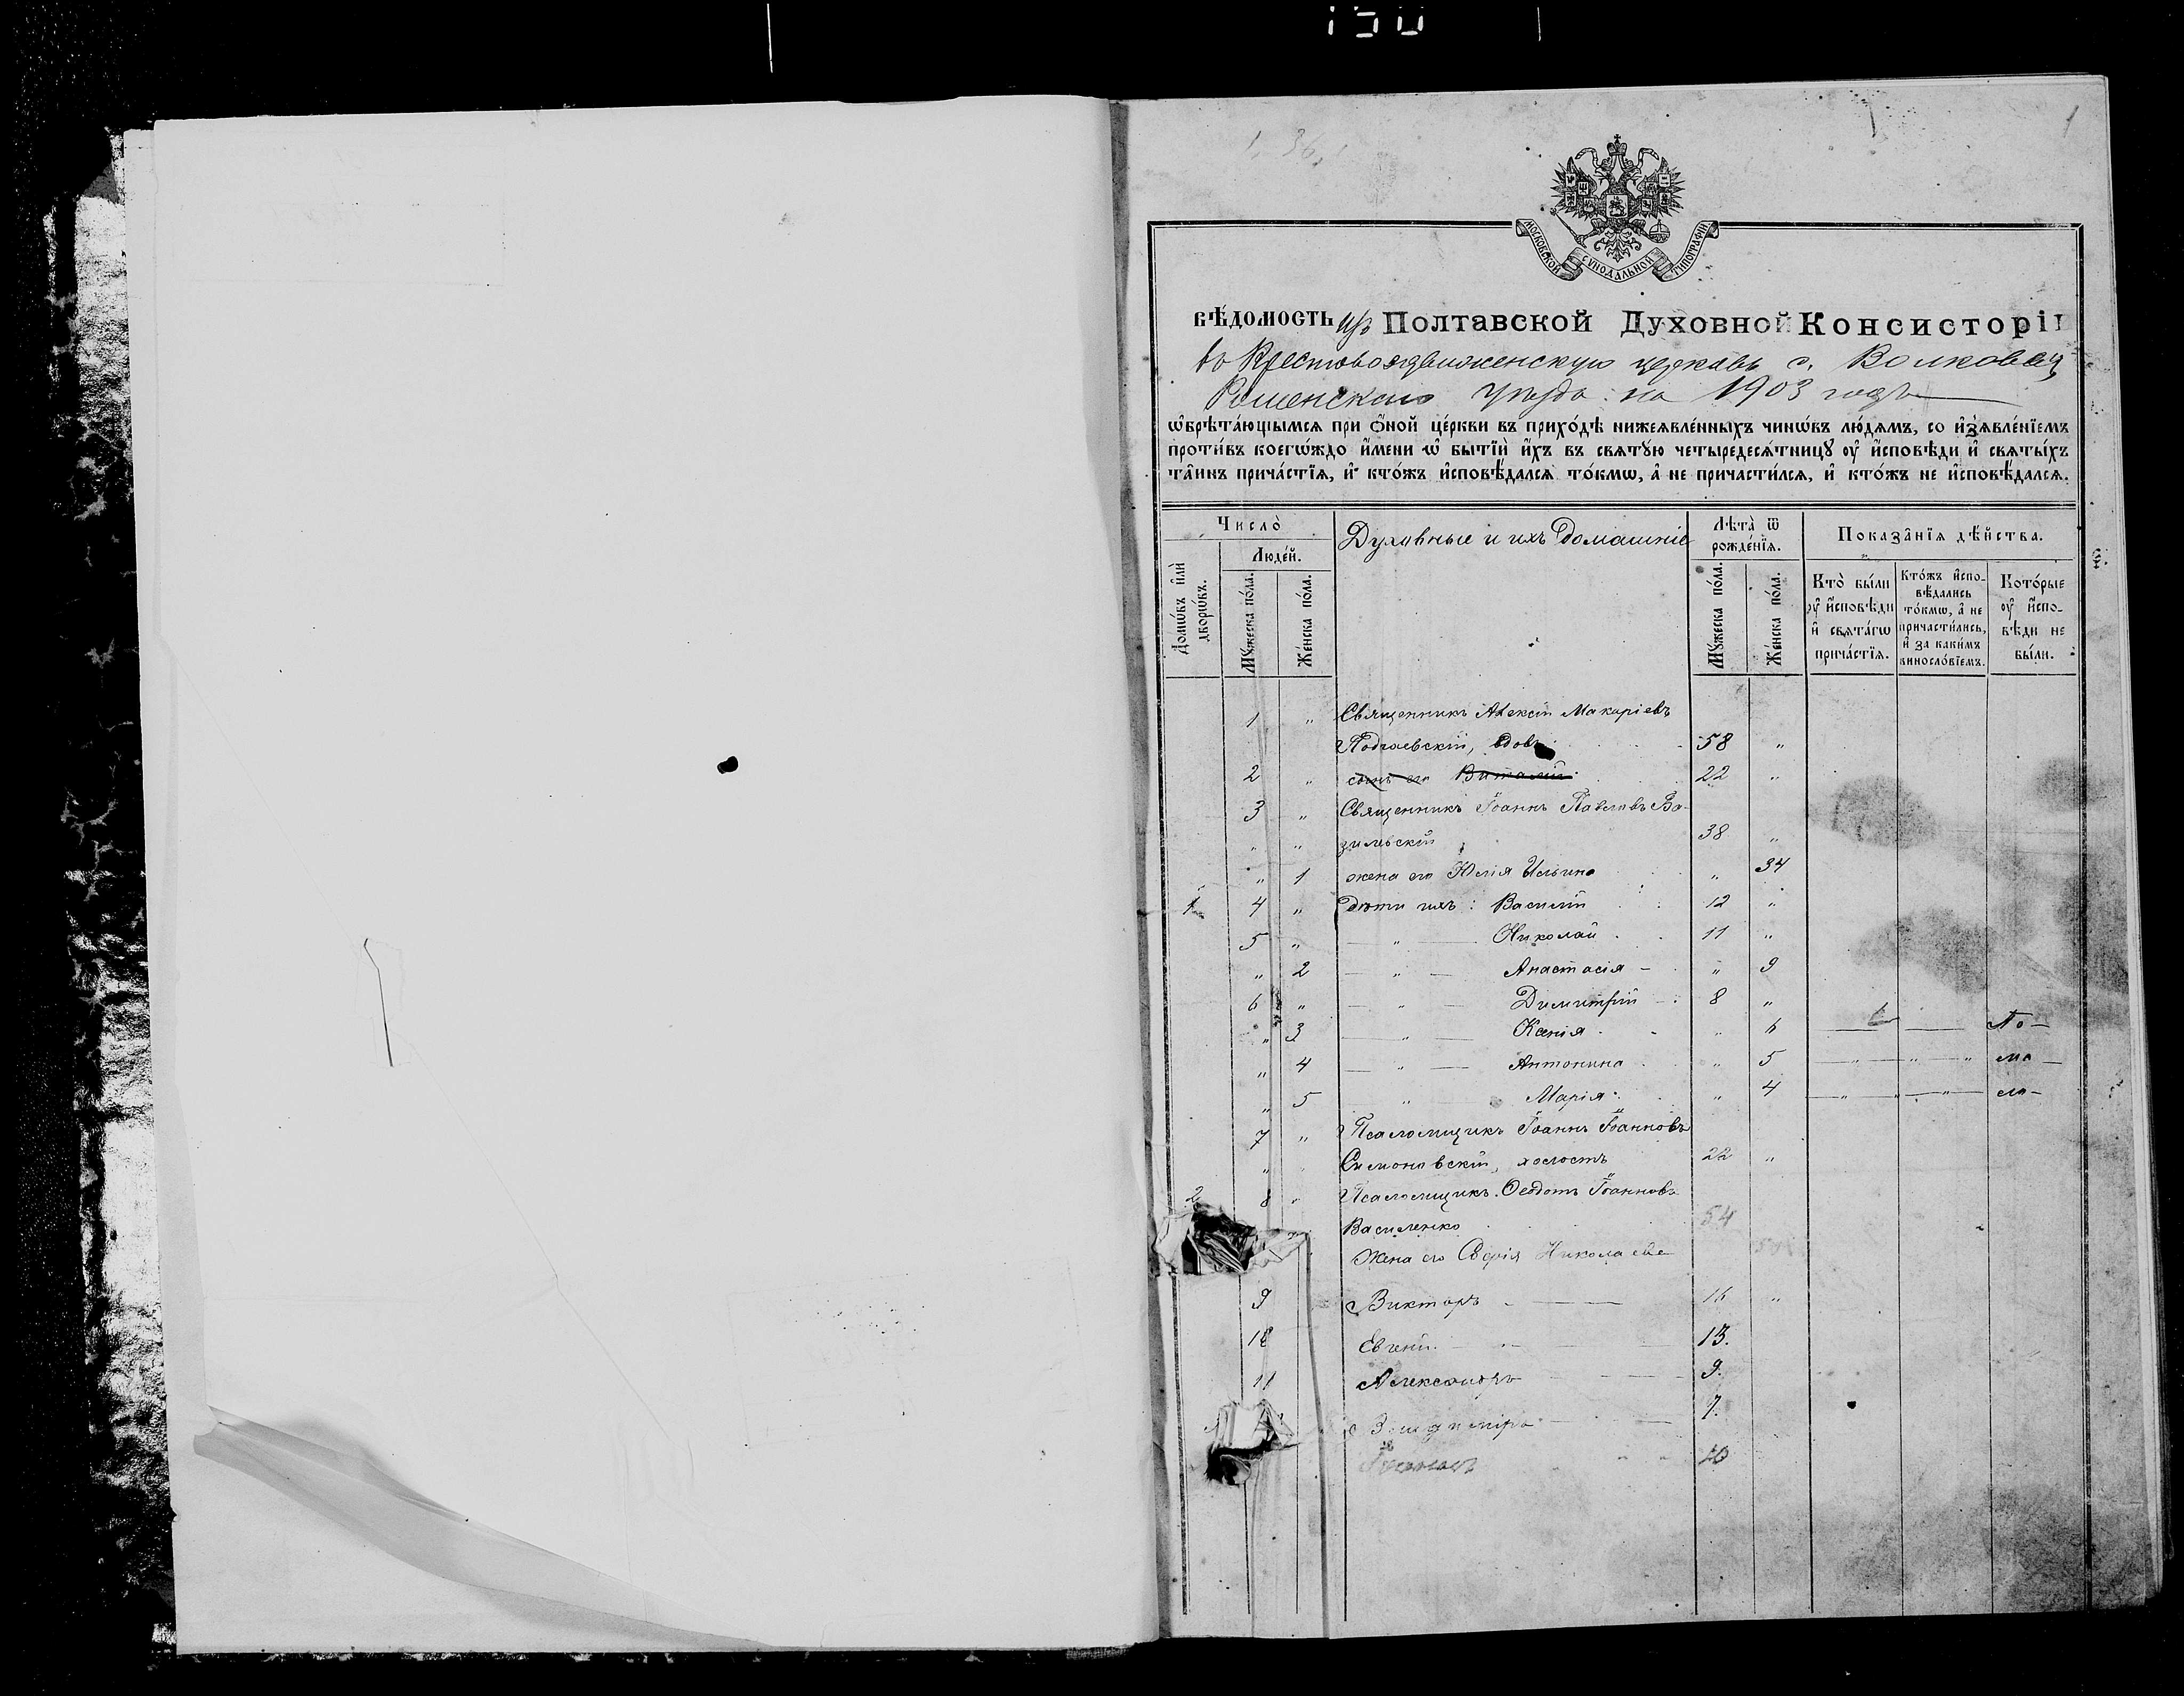 150
1
1. 36.
МОСКОВСКОЙ СУНОДАЛЬНОЙ ТИПОГРАФІИ
вѣ́домость изъ Полтавской Духовной Консисторіи
въ Крестовоздвиженскую церковь с. Волковец
Роменскаго уѣзда на 1903 годъ
ѡ҆брѣта́ющыымсѧ при ѻ҆́ной це́ркви въ прихо́дѣ нижеѧвле́нныхъ чинѡ́въ лю́дѧмъ, со и҆з̾ѧвле́нїемъ
проти́въ коегѡ́ждо и҆́мени ѡ҆ бытїѝ и҆́хъ въ свѧтꙋ́ю четыредесѧ́тницꙋ оу҆ и҆́сповѣди и҆ свѧты́хъ
та̑инъ прича́стїѧ, и҆ кто́жъ и҆сповѣ́далсѧ то́кмѡ, а҆ не причасти́лсѧ, и҆ кто́жъ не и҆сповѣ́далсѧ.
Число̀
Духовные и ихъ домашніе
Лѣта̀ ѿ рожде́нїѧ.
Показа̑нїѧ дѣ́йства.
Домѡ́въ и҆лѝ дворѡ́въ.
Люде́й.
Мꙋ́жеска по́ла.
Же́нска по́ла.
Мꙋ́жеска по́ла.
Же́нска по́ла.
Кто̀ бы́ли оу҆ и҆́сповѣди и҆ свѧта́гѡ прича́стїѧ.
Кто́жъ и҆спо-вѣ́дались то́кмѡ, а҆ не причасти́лись, и҆ за каки́мъ виносло́вїемъ.
Кото́рые оу҆ и҆́спо-вѣди не бы́ли.
1 " Священникъ Алексій Макаріевъ
Подгаевскій, вдовъ 58 "
2 " сынъ его Виталій 22 "
3 " Священникъ Іоаннъ Павловъ Ба-
" " зилевскій 38 "
" 1 жена его Юлія Ильина " 34
1 4 " Дѣти ихъ: Василій 12 "
5 " — " — Николай 11 "
" 2 — " — Анастасія " 9
6 " — " — Димитрій 8 "
" 3 — " — Ксенія " 6 По-
" 4 — " — Антонина " 5 — " — " — " ма-
" 5 " Марія " 4 — " — " — " — ло-
7 " Псаломщикъ Іоаннъ Іоанновъ
" Симоновскій, холостъ 22 "
2 8 " Псаломщикъ Ѳеодотъ Іоанновъ
Василенко 54
Жена его Софія Николаева
9 Викторъ 16 "
10 Евгеній 13.
11 Александръ 9.
Владиміръ 7.
10